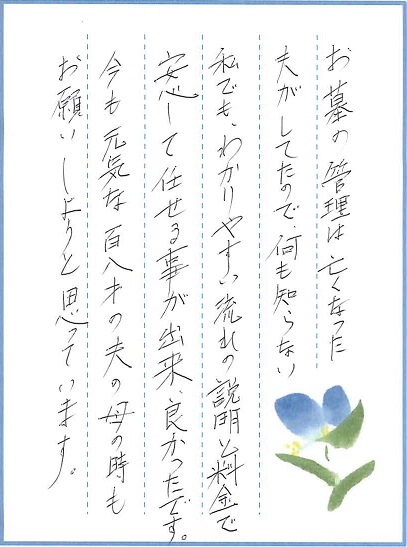 お墓の管理は亡くなった
夫がしてたので、何も知らない
私でも、わかりやすい流れの説明と料金で
安心して任せる事が出来、良かったです。
今も元気な百八才の夫の母の時も
お願いしようと思っています。